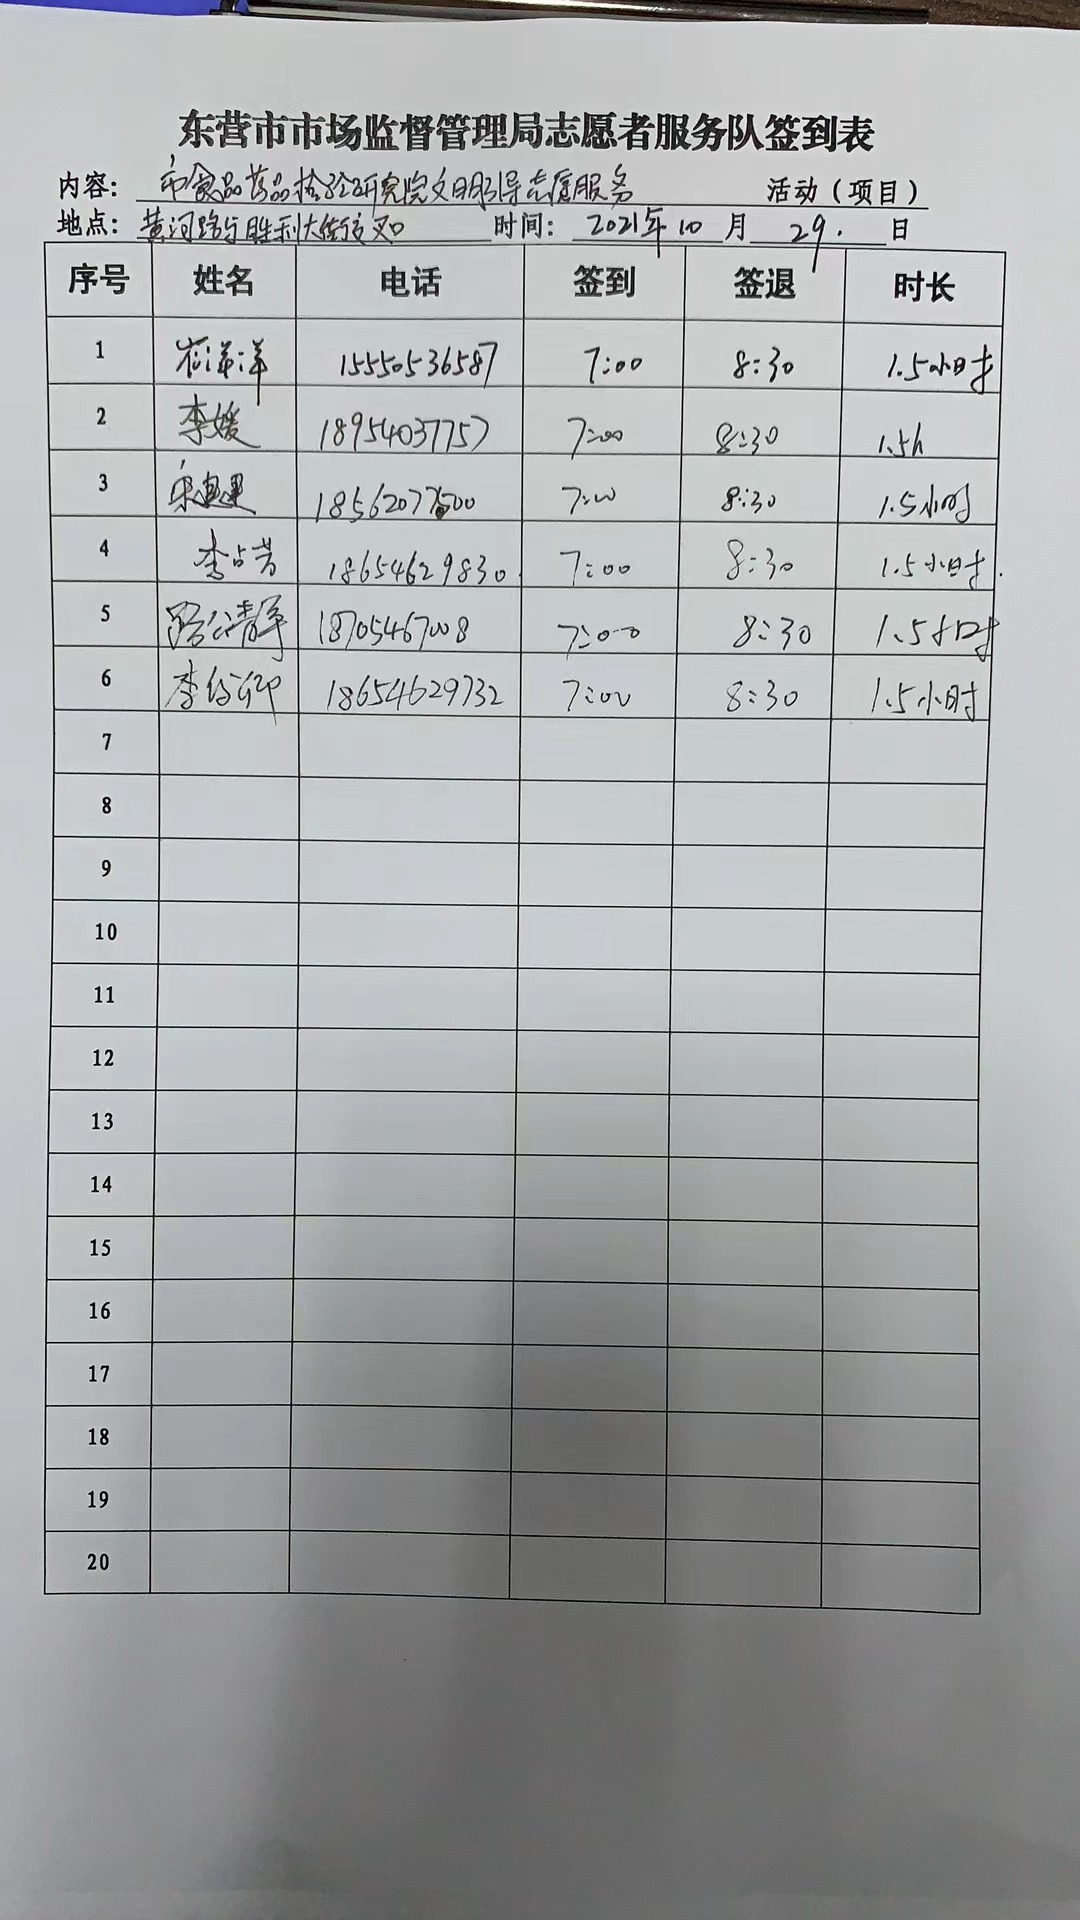 东营市市场监督管理局志愿者服务队签到表
内容：市食品药品检验研究院文明引导志愿服务 活动（项目）
地点：黄河路与胜利大街交叉口 时间：2021年10月29.日
序号 姓名 电话 签到 签退 时长
1 崔洋洋 15550536587 7:00 8:30 1.5小时
2 李媛 18954037757 7:00 8:30 1.5h
3 18562077500 7:00 8:30 1.5小时
4 李占芳 18654629830. 7:00 8:30 1.5小时.
5 路公静 18705467008 7:00 8:30 1.5小时
6 李 18654629732 7:00 8:30 1.5小时
7
8
9
10
11
12
13
14
15
16
17
18
19
20